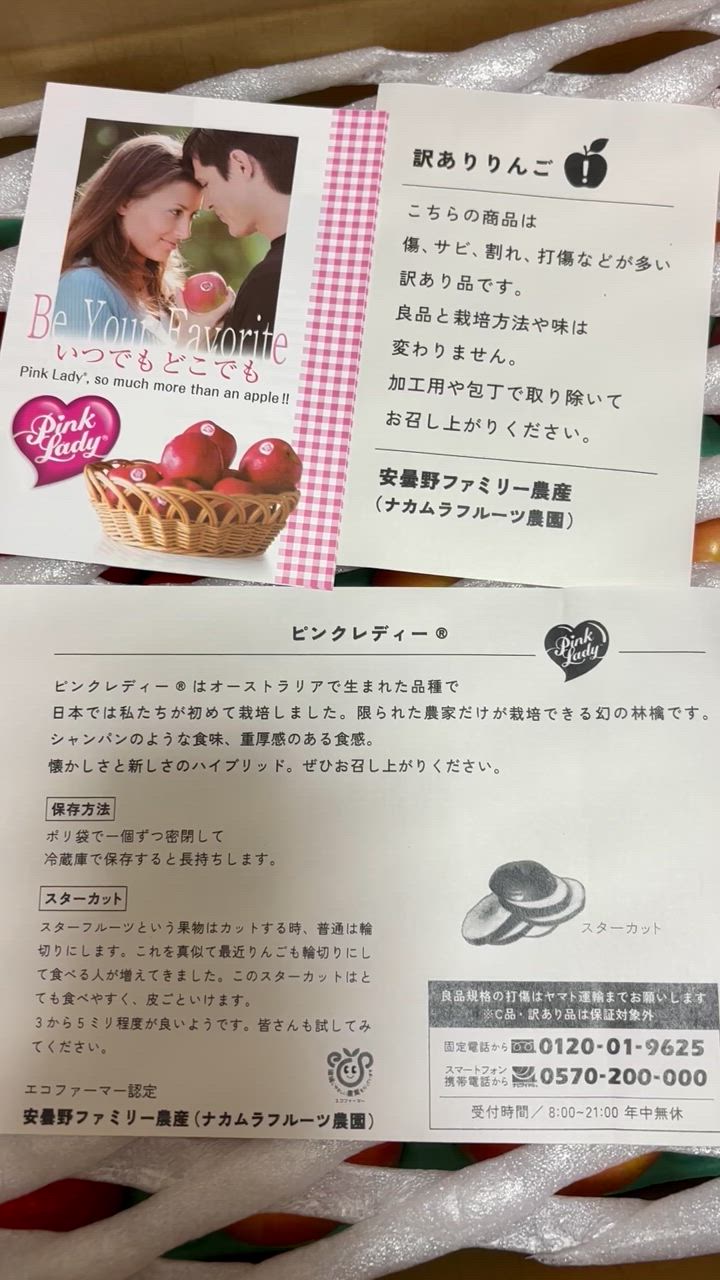 Be Your Favorite
いつでもどこでも
Pink Lady®, so much more than an apple!!
Pink
Lady®
訳ありりんご
こちらの商品は
傷、サビ、割れ、打傷などが多い
訳あり品です。
良品と栽培方法や味は
変わりません。
加工用や包丁で取り除いて
お召し上がりください。
安曇野ファミリー農産
(ナカムラフルーツ農園)
ピンクレディー®
Pink
Lady
ピンクレディー®はオーストラリアで生まれた品種で
日本では私たちが初めて栽培しました。限られた農家だけが栽培できる幻の林檎です。
シャンパンのような食味、重厚感のある食感。
懐かしさと新しさのハイブリッド。ぜひお召し上がりください。
保存方法
ポリ袋で一個ずつ密閉して
冷蔵庫で保存すると長持ちします。
スターカット
スターフルーツという果物はカットする時、普通は輪
切りにします。これを真似て最近りんごも輪切りにし
て食べる人が増えてきました。このスターカットはと
ても食べやすく、皮ごといけます。
3から5ミリ程度が良いようです。皆さんも試してみ
てください。
スターカット
エコファーマー
エコファーマー認定
安曇野ファミリー農産(ナカムラフルーツ農園)
良品規格の打傷はヤマト運輸までお願いします
※C品・訳あり品は保証対象外
固定電話から 0120-01-9625
スマートフォン
携帯電話から 0570-200-000
受付時間/8:00~21:00 年中無休